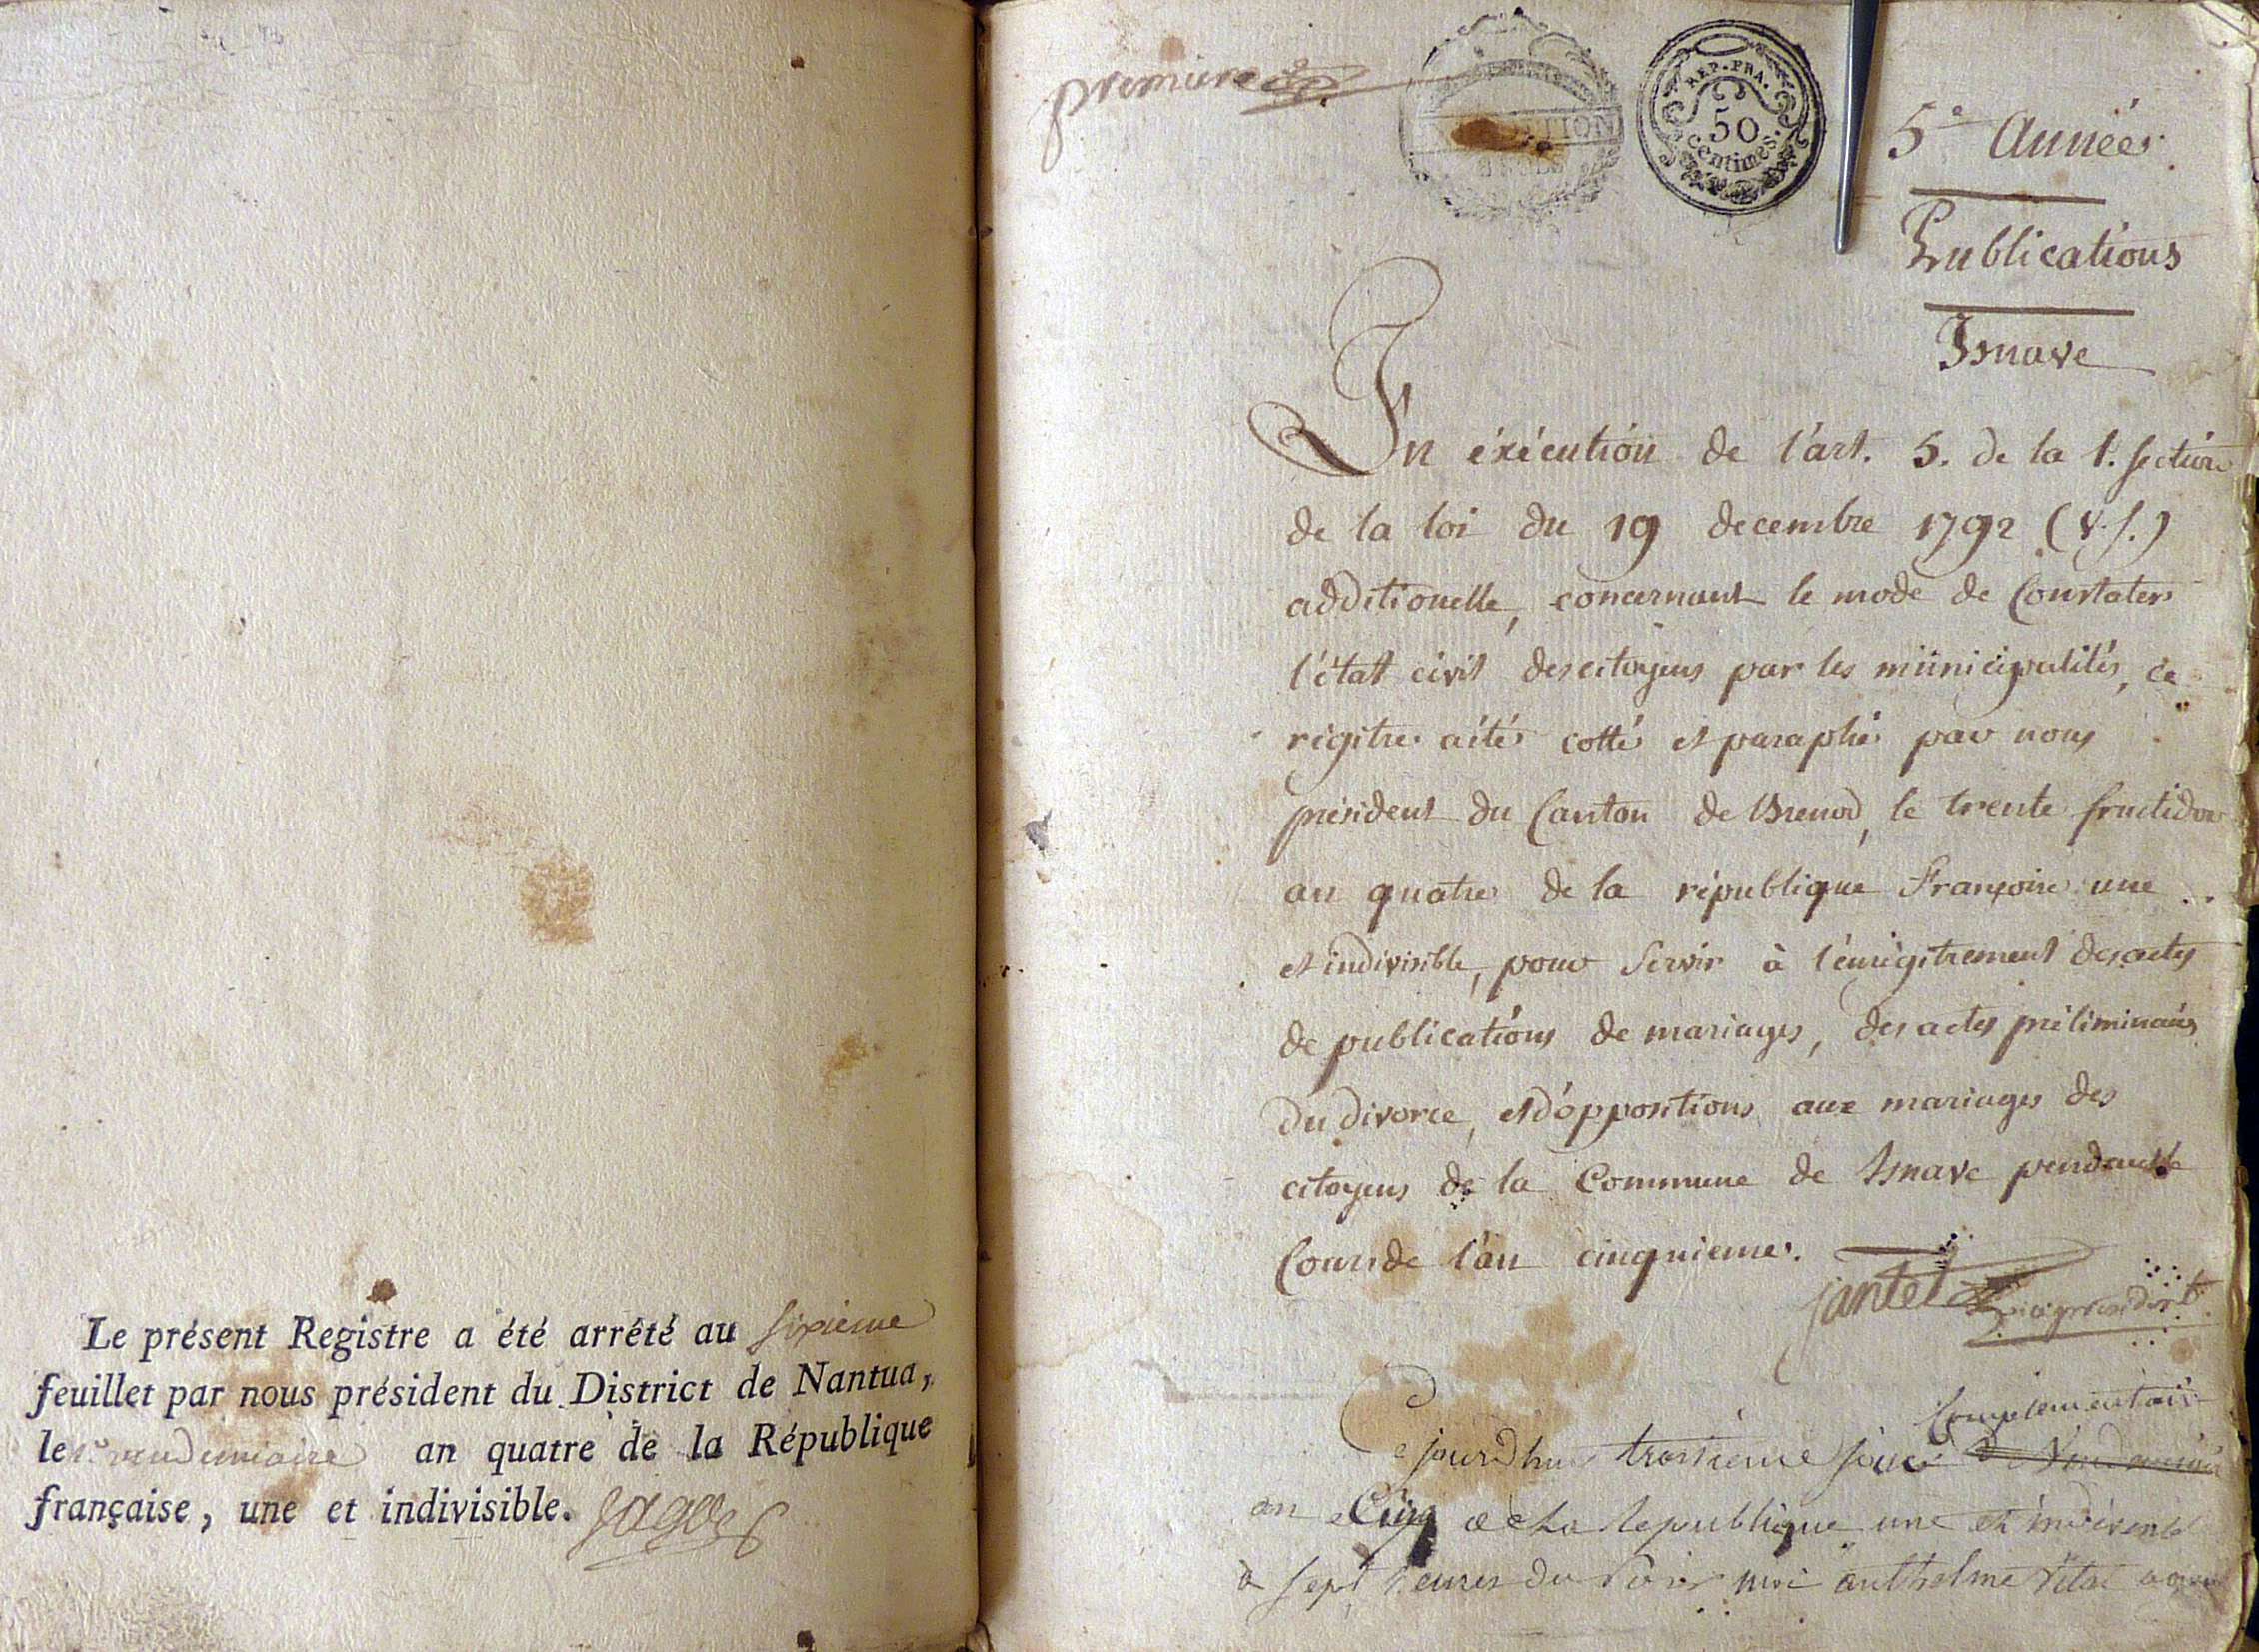 Le présent Registre a été arrêté au sixieme
feuillet par nous président du District de Nantua,
le 1er vendemiaire an quatre de la République
française, une et indivisible.
premiere
REP. FRA.
50
centimes.
5e Année
Publications
Isnave
En éxécution de l'art. 5. de la 1. section
de la loi du 19 decembre 1792 (v.s.)
additionelle, concernant le mode de Constater
l'état civil des citoyens par les municipalités, ce
régitre a été cotté et paraphé par nous
président du Canton de Brenod, le trente fructidor
an quatre de la république Françoise une
et indivisible, pour servir à l'énrégitrement des actes
de publications de mariages, des actes préliminaires
du divorce, et d'oppositions aux mariages des
citoyens de la Commune de Isnave pendant le
Cours de l'an cinquieme.
jantet vice president
Complementair
Cejourdhui troisieme jour
an Cinq de La Republique une et indivisible
a sept heures du soir moi anthelme vital agent